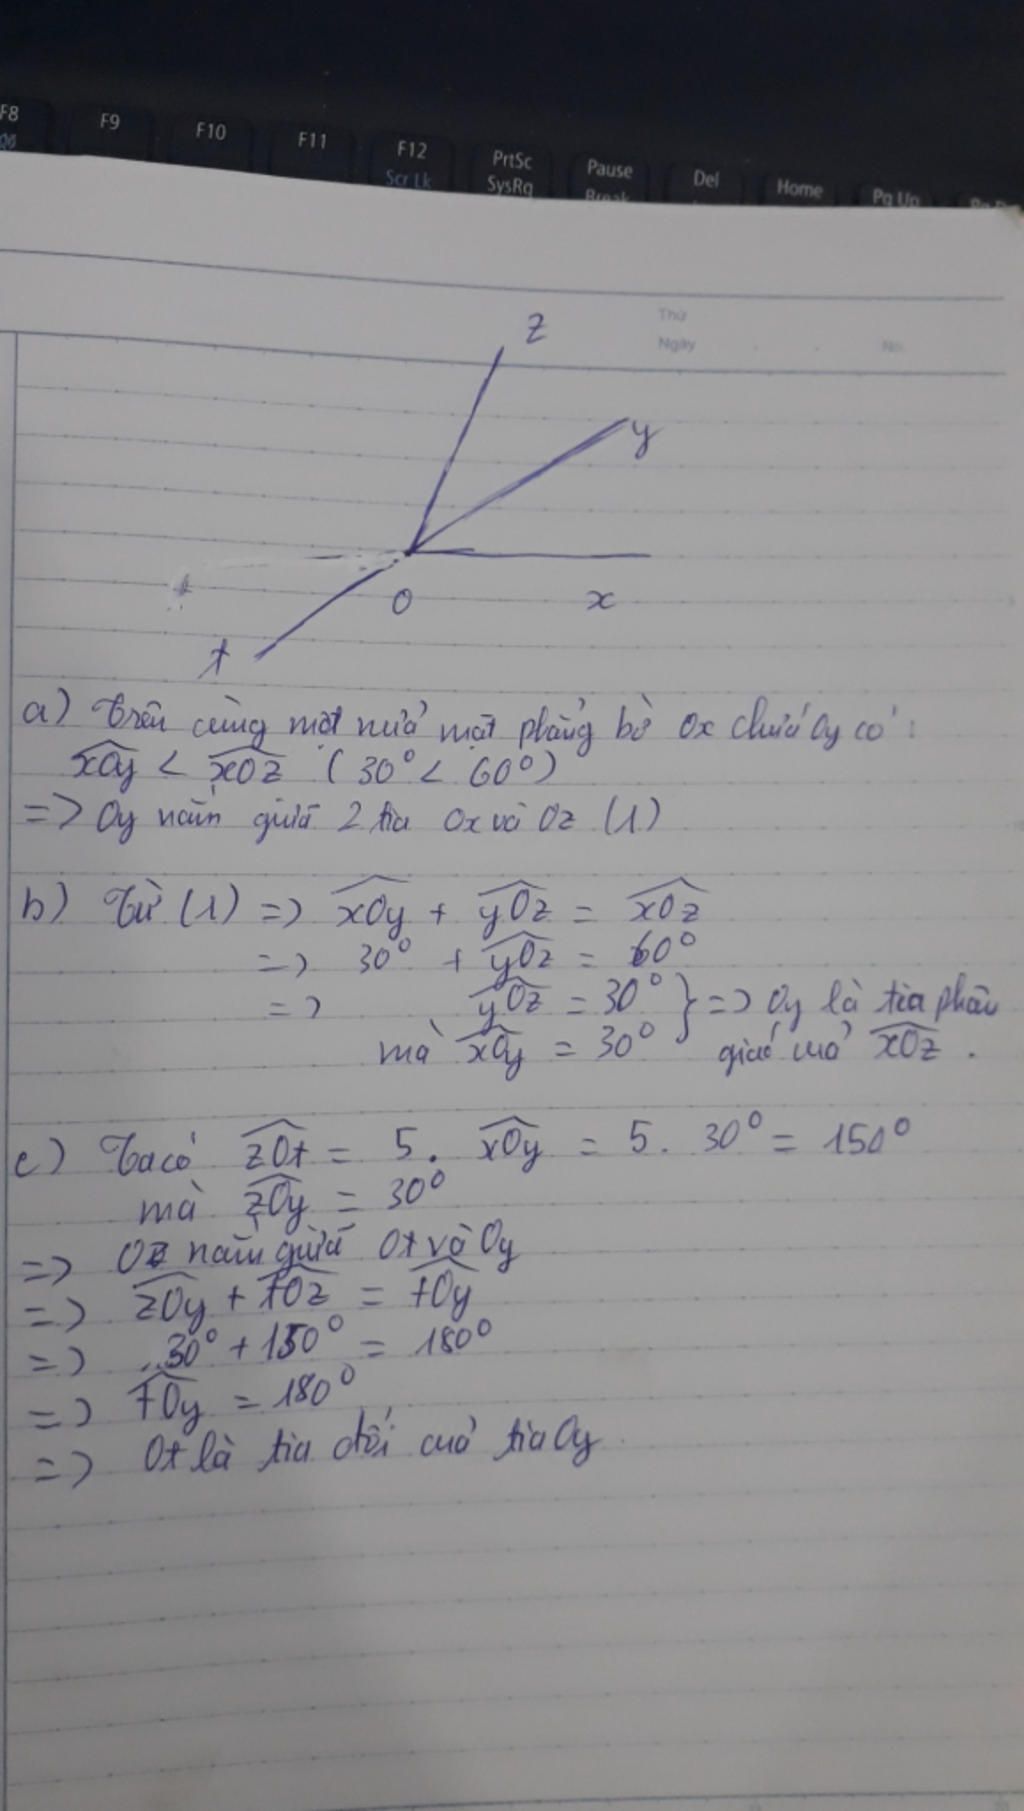 F8
F9
F10
F11
F12
Scr Lk
PrtSc
SysRq
Pause
Break
Del
Home
Pg Up
Thứ
Ngày
No.
z
y
O
x
t
a) Trên cùng một nửa mặt phẳng bờ Ox chứa Oy có:
xOy < xOz (30° < 60°)
=> Oy nằm giữa 2 tia Ox và Oz (1)
b) Từ (1) => xOy + yOz = xOz
=> 30° + yOz = 60°
=> yOz = 30° } => Oy là tia phân
mà xOy = 30° giác của xOz.
c) Ta có zOt = 5. xOy = 5. 30° = 150°
mà zOy = 30°
=> Oz nằm giữa Ot và Oy
=> zOy + tOz = tOy
=> 30° + 150° = 180°
=> tOy = 180°
=> Ot là tia đối của tia Oy